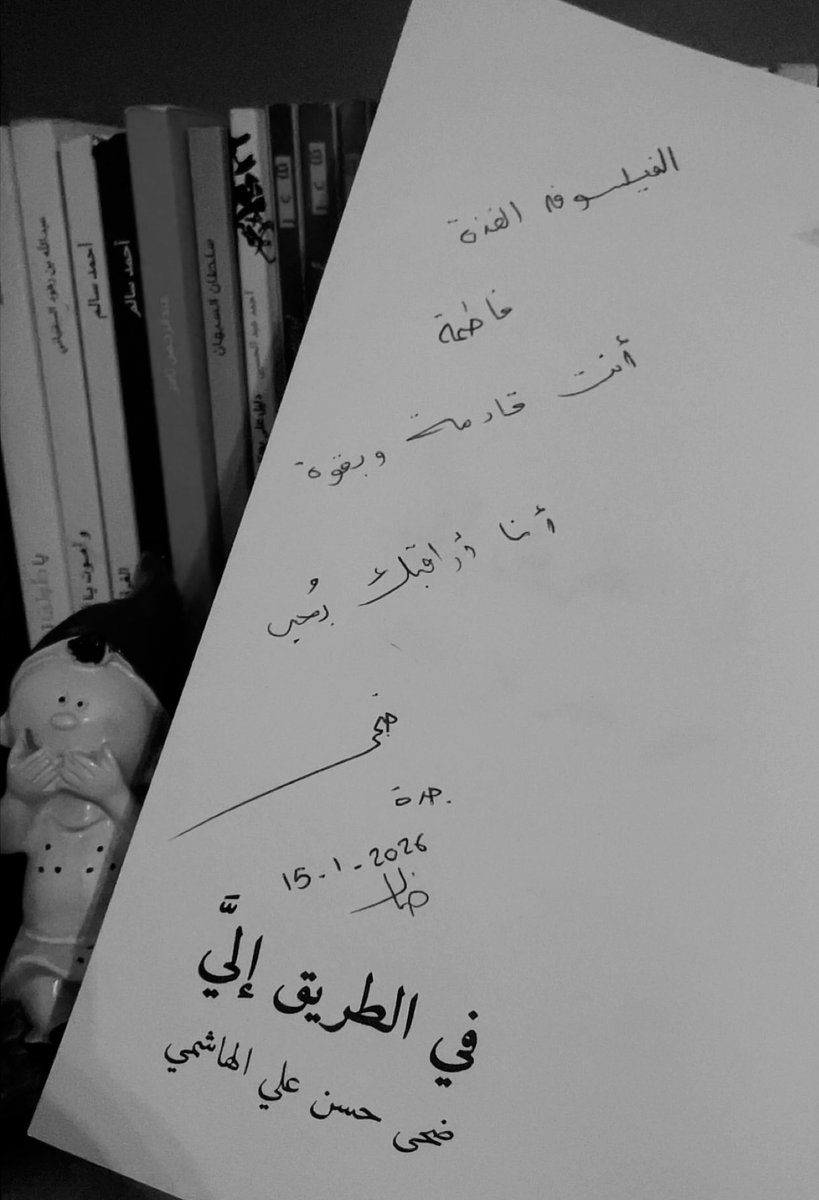 الفيلسوفة الفذة
فاطمة
أنت قادمة وبقوة
أنا أراقبك بحُب
ضحى
جدة
15-1-2026
في الطريق إلَّي
ضحى حسن علي الهاشمي
عبدالله بن
أحمد سالم
أحمد سالم
سلطان السبهان